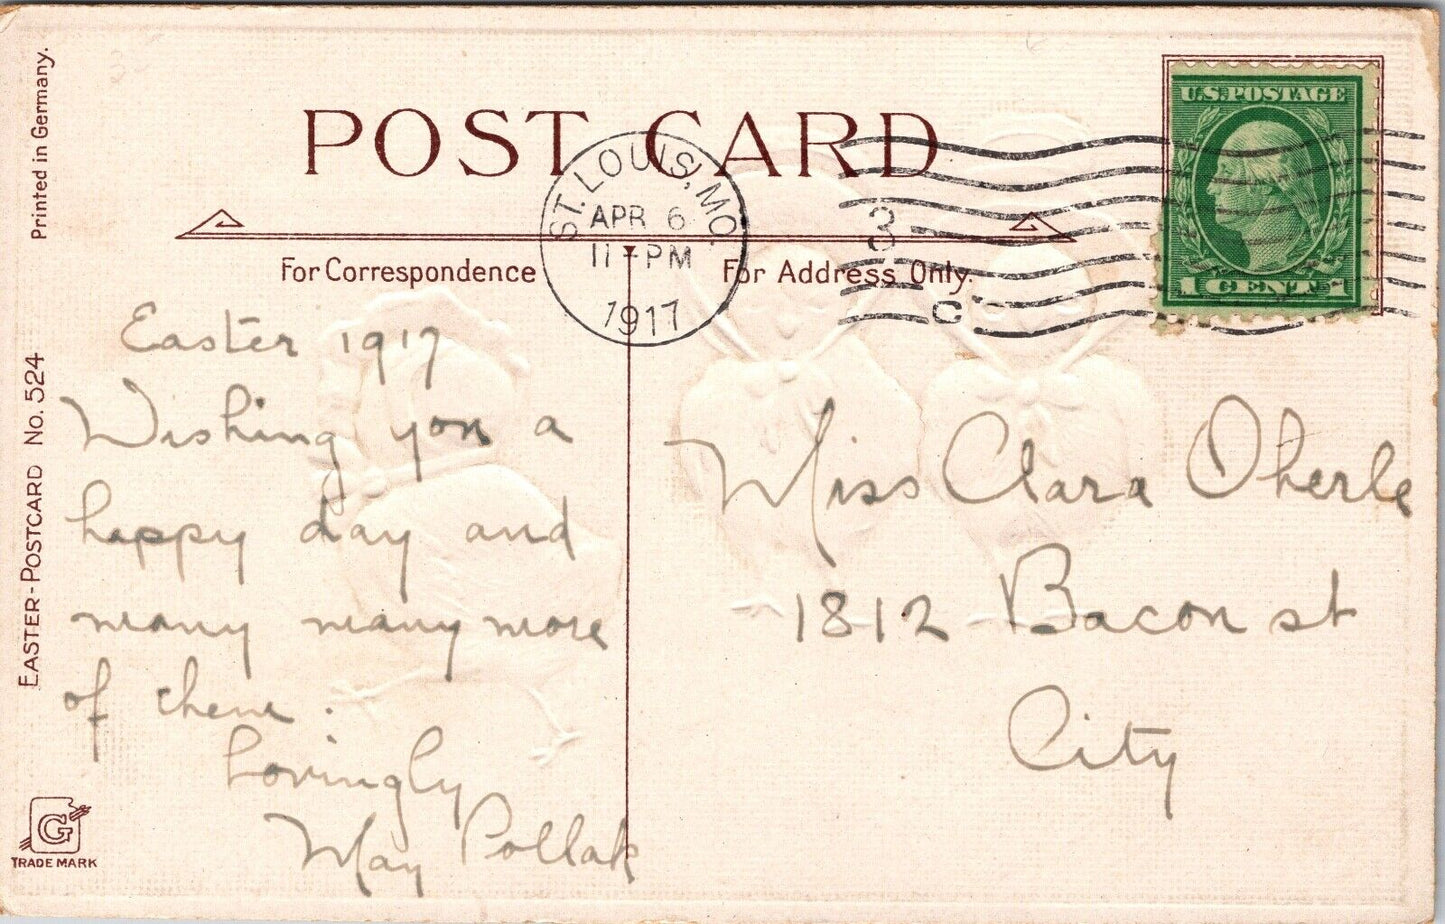 Printed in Germany.
EASTER-POSTCARD No. 524
G
TRADE MARK
POST CARD
For Correspondence
For Address Only.
ST. LOUIS, MO.
APR 6
11-PM
1917
3
C
U.S. POSTAGE
1 CENT 1
Easter 1917
Wishing you a
happy day and
many many more
of them.
Lovingly
May Pollak
Miss Clara Oherle
1812 Bacon st
City